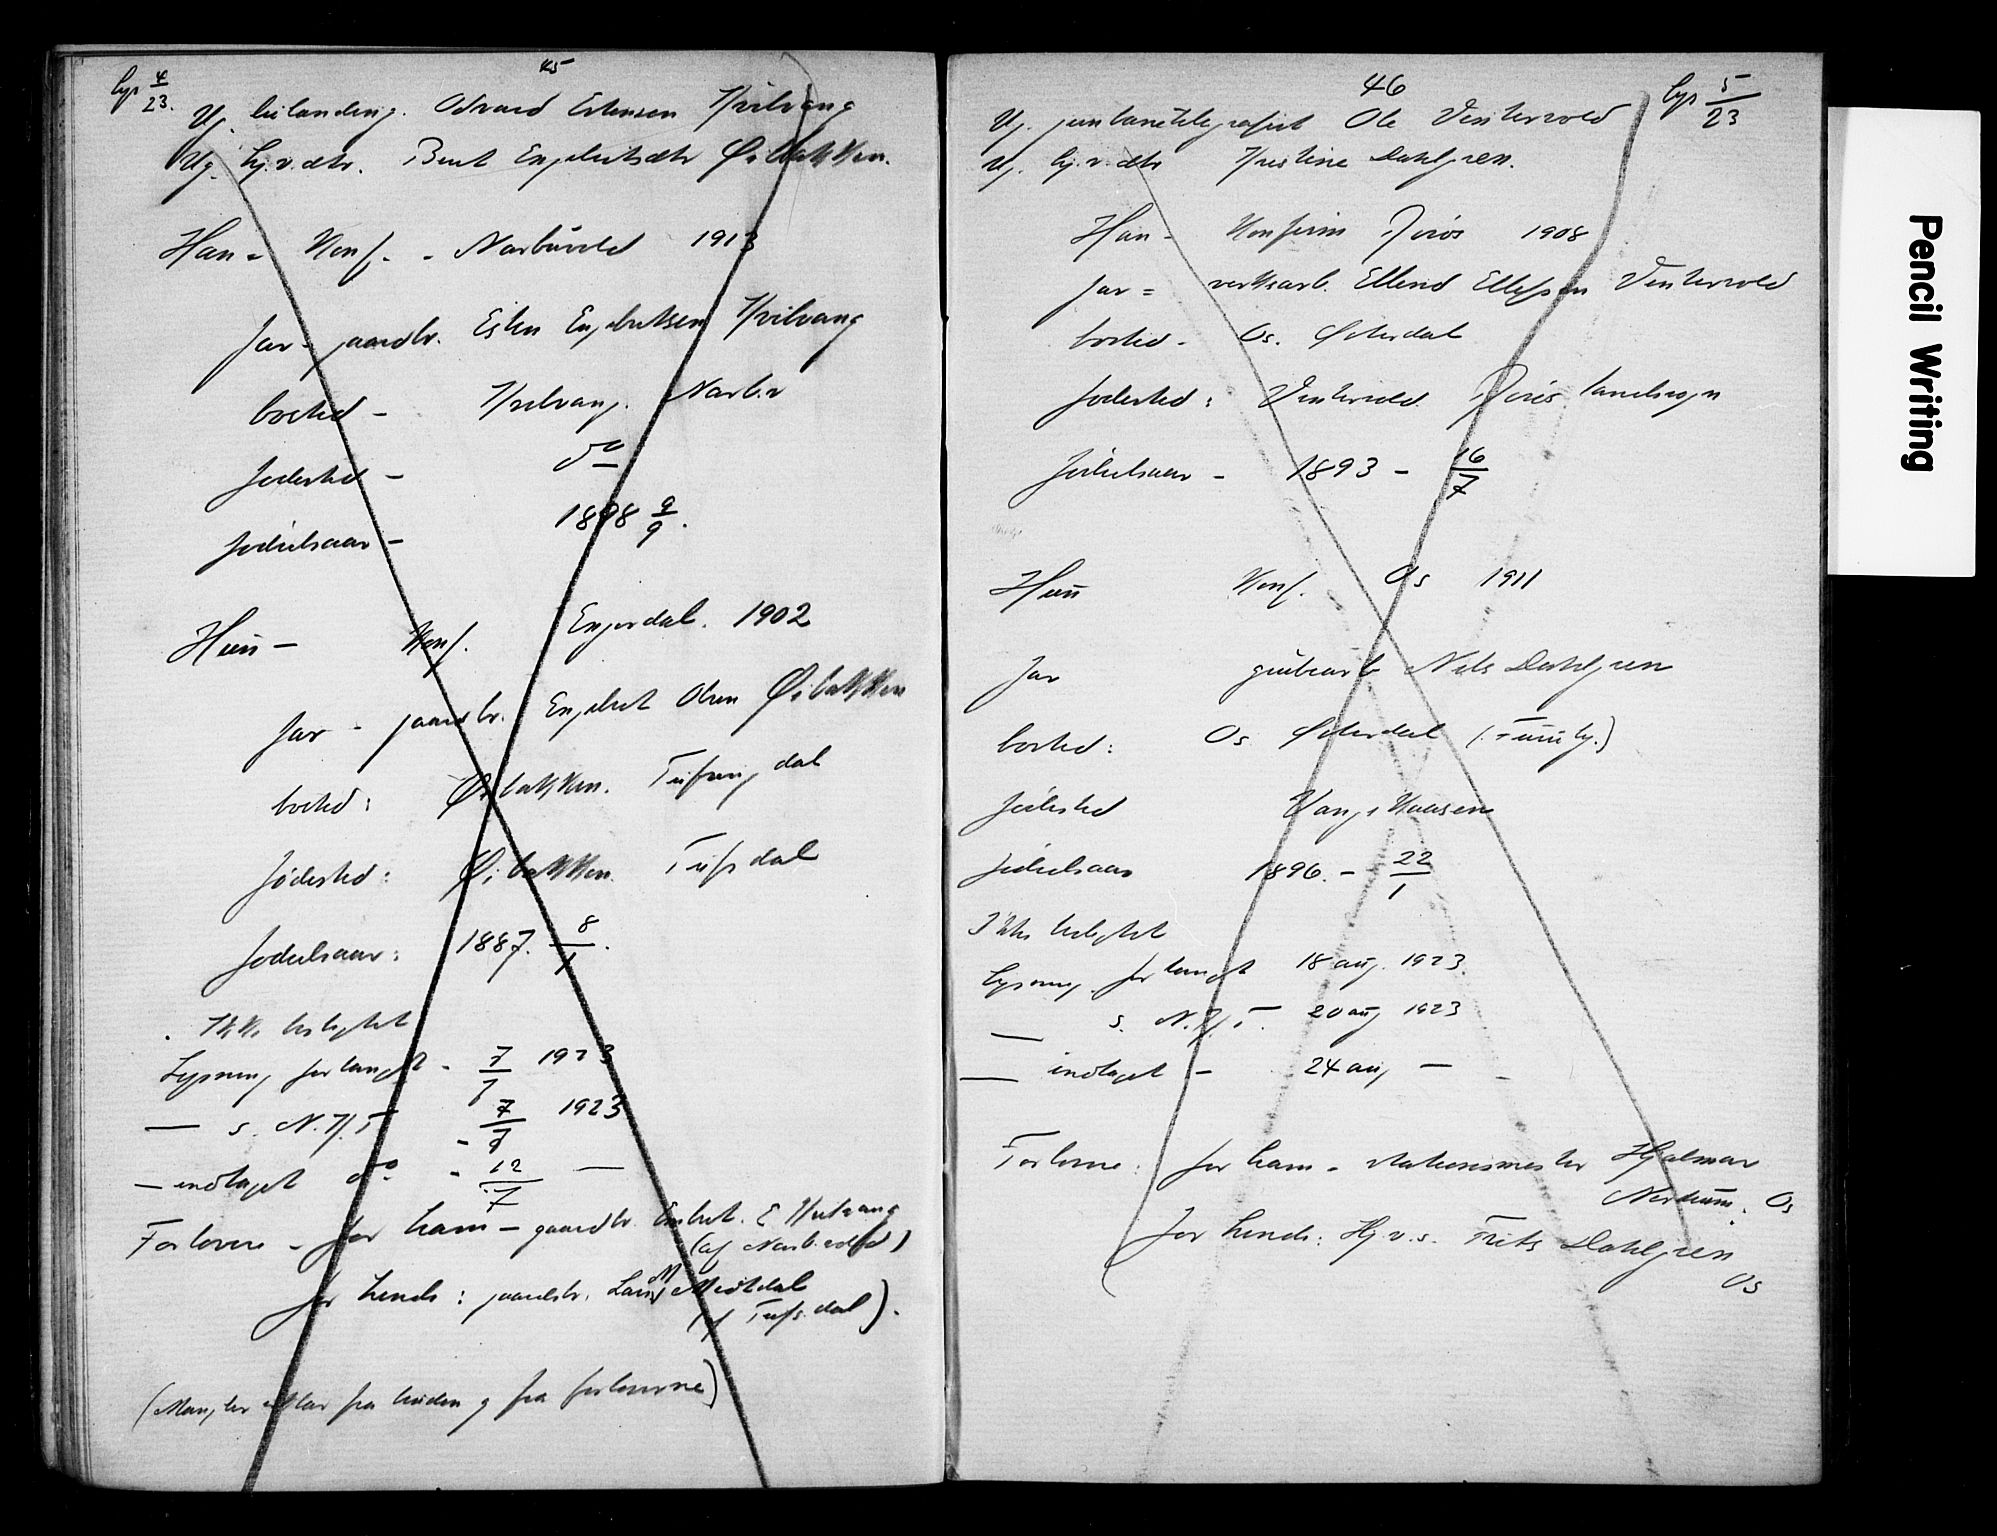 45
lys 4/23.
Ug. Odvard Estensen Kvilvang
Ug. hj.v.dtr. Berit Engebretsdtr Øibakken.
Han - Konf. - Narbuvold 1913
far - gaardbr. Esten Engebretsen Kvilvang
bosted - Kvilvang. Narb.v
fødested - do
fødselsaar - 1898 9/9.
Hun - Konf. Engerdal. 1902
far - gaardbr. Engebret Olsen Øibakken
bosted: Øibakken. Tufsingdal
fødested: Øibakken Tufsdal
fødselsaar: 1887. 8/1.
Ikke beslegtet
Lysning forlangt - 7/7 1923
— s. N.K.T - 7/7 1923
— indtaget do - 12/7 —
Forlovere - for ham - gaardbr. Embret. E Kvilvang
(af Narbuvold)
for hende: gaardbr. Lars M Midtdal
(af Tufsdal).
(Mangler attest fra bruden og fra forloverne)
46
lys 5/23
Ug. jernbanetelegrafist Ole Vintervold
Ug. hj.v.dtr Kristine Dahlgren.
Han - Konfirm Røros 1908
far = verksarb. Ellend Ellefsen Vintervold
bosted - Os. Østerdal
fødested: Vintervold. Røros landsogn
fødselsaar - 1893 - 16/7
Hun Konf. Os 1911
far grubearb Nils Dahlgren
bosted: Os Østerdal
fødested Vang
fødselsaar 1896. - 22/1
Ikke beslegtet
Lysning forlangt 18 aug. 1923.
— s. N.K.T. 20 aug 1923
— indtaget - 24 aug —
Forlovere: for ham - stationsmester Hjalmar
Nordrum. Os
for hende: Hj.v.s. Frits Dahlgren
Os
Pencil Writing